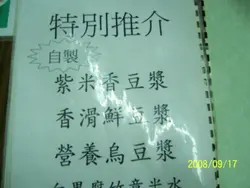 特別推介
自製
紫米香豆漿
香滑鮮豆漿
營養烏豆漿
白果腐竹薏米水
2008/09/17